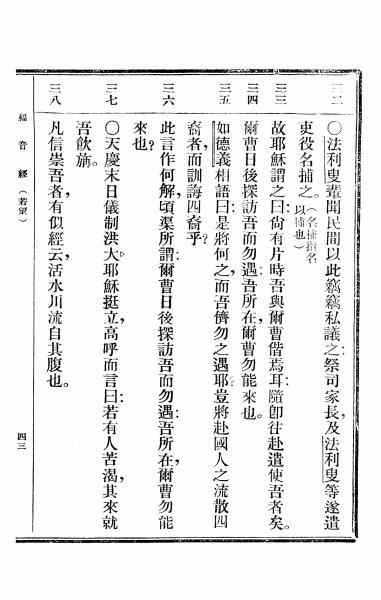 三二
〇法利叟輩聞民間以此竊竊私議之祭司家長,及法利叟等遂遣
吏役名捕之。(名捕指名以捕也)
三三
故耶穌謂之曰:尙有片時吾與爾曹偕焉耳隨卽往赴遣使吾者矣。
三四
爾曹日後探訪吾而勿遇吾所在,爾曹勿能來也。
三五
如德義相語曰:是將何之,而吾儕勿之遇耶豈將赴國人之流散四
裔者,而訓誨四裔乎?
三六
此言作何解,頃渠所謂:爾曹日後探訪吾而勿遇吾所在,爾曹勿能
來也?
三七
〇天慶末日儀制洪大耶穌挺立,高呼而言曰:若有人苦渴,其來就
吾飲旃。
三八
凡信崇吾者,有似經云,活水川流自其腹也。
福音經(若望)
四三